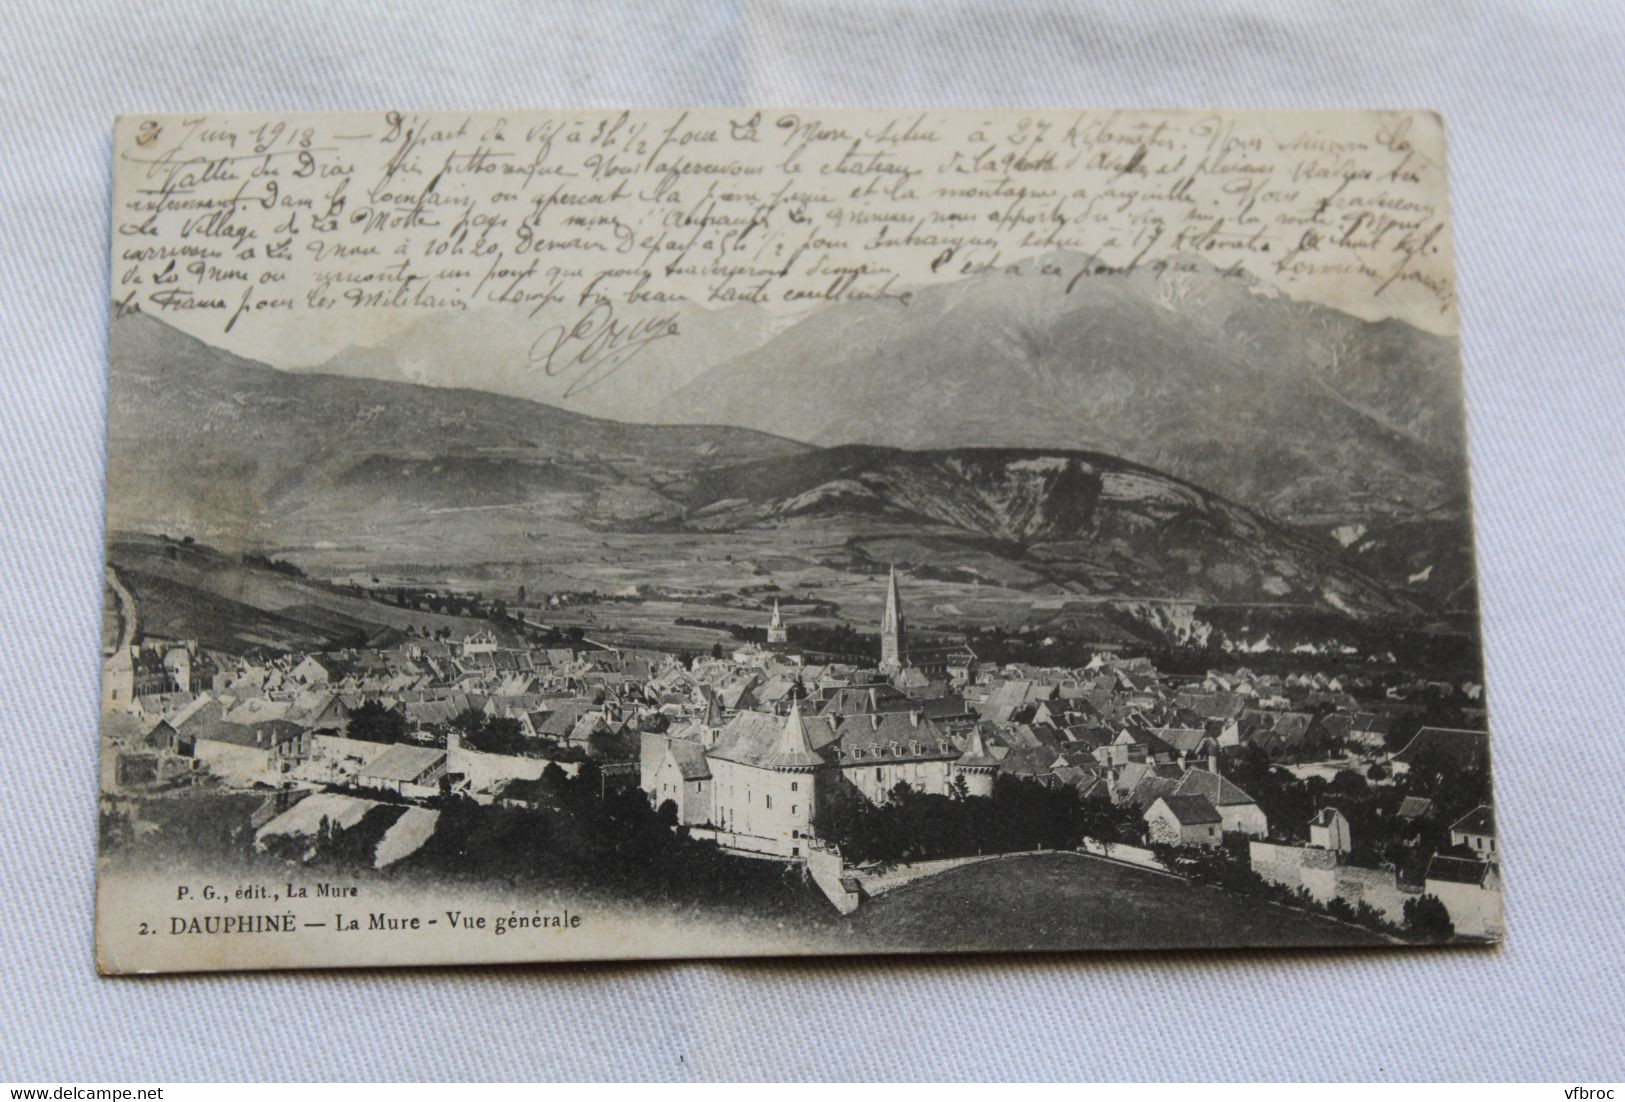 Juin 1913 — Départ de Vif à 3h 1/2 pour La Mure situé à 27 Kilomètres. Nous suivons la
Vallée du Drac très pittoresque Nous apercevons le chateau de la Motte d'Aveillans et plusieurs
Dans le lointain on aperçoit la pierre percée et la montagne a aiguille. Nous traversons
Le Village de La Motte pays de mines d'Antracite Les Mineurs nous apporte du vin sur la route. Nous
arrivons à La Mure à 10h20. Demain Départ à 5h 1/2 pour Entraigues situé à 17 Kilomètres
de La Mure on un pont que nous traverserons demain, C'est a ce pont que se termine
la France pour les Militaires temps très beau Santé excellente
P. G., édit., La Mure
2. DAUPHINÉ — La Mure - Vue générale
vfbroc